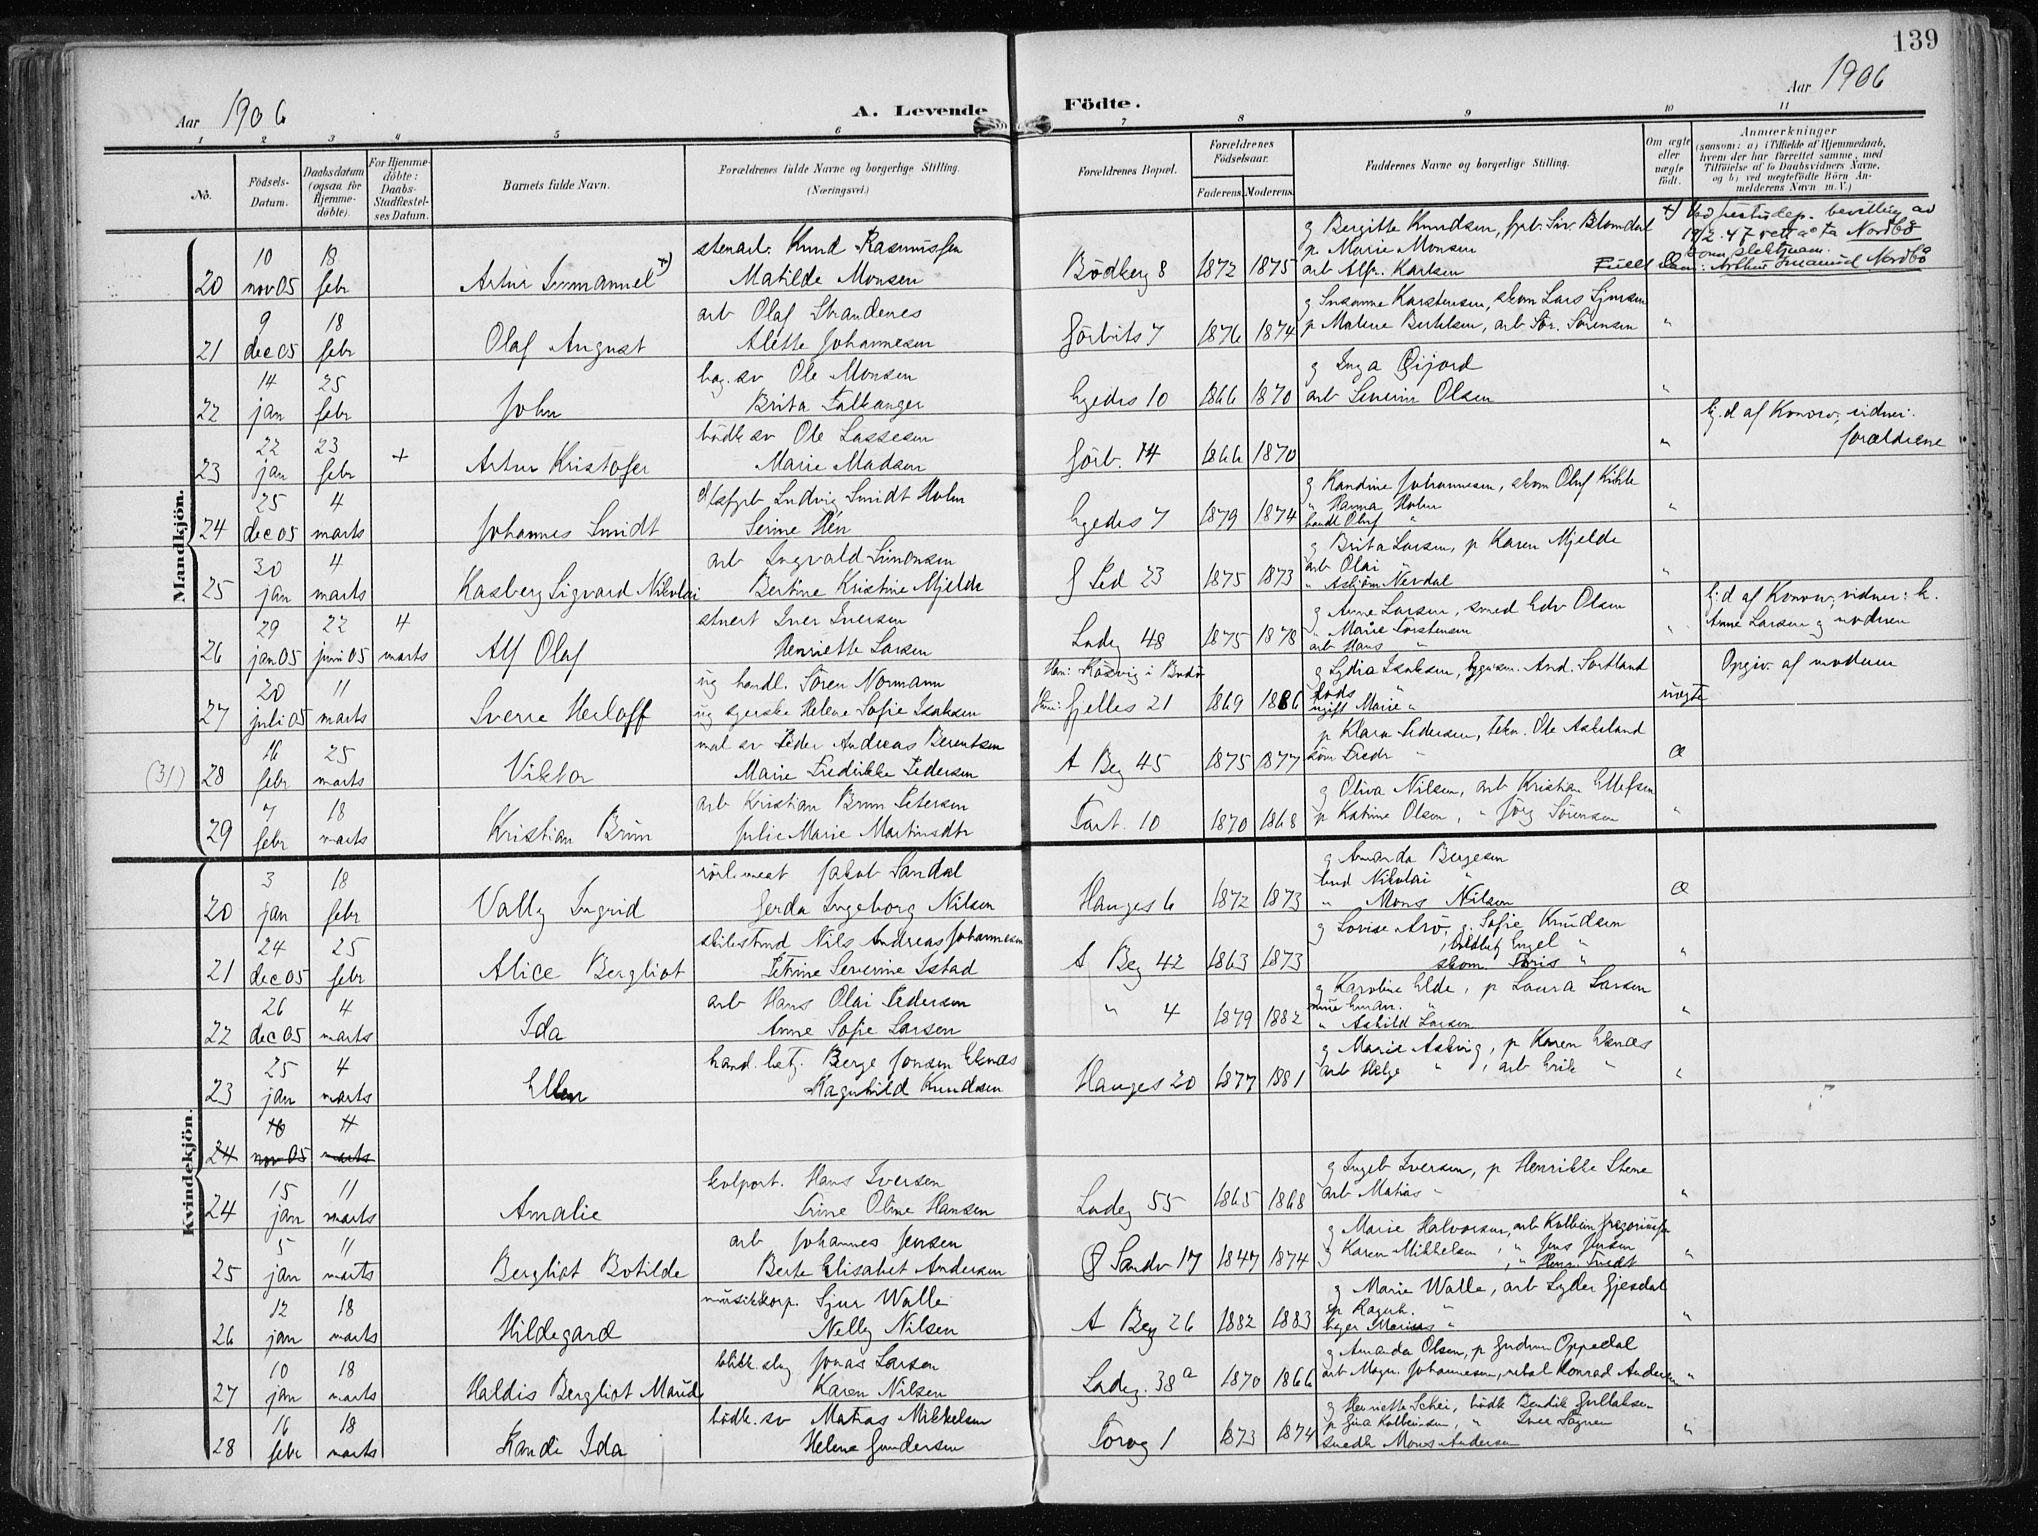 139
Aar 1906
A. Levende Födte.
Aar 1906
1 2 3 4 5 6 7 8 9 10 11
No.
Födsels-Datum.
Daabsdatum (ogsaa för Hjemme-döbte).
For Hjemme-döbte: Daabs-Stadfæstel-ses Datum.
Barnets fulde Navn.
Forældrenes fulde Navne og borgerlige Stilling.
(Næringsvei.)
Forældrenes Bopæl.
Forældrenes Födselsaar.
Faderens. Moderens.
Faddernes Navne og borgerlige Stilling.
Om ægte eller uægte födt.
Anmærkninger
(saasom: a) i Tilfælde af Hjemmedaab, hvem der har forrettet samme, med Tilföielse af to Daabsvidners Navne, og b) ved uægtefödte Börn An-melderens Navn m. V.)
Mandkjön.
20 10 nov 05 18 febr Artur Immanuel x) stenarb. Knud Rasmussen Matilde Monsen Bödkerg 8 1872 1875 g Bergitte Knudsen, Siv. Blomdal p Marie Monsen arb Alfr. Karlsen
x) Ved justisdep. bevilling av 19/2.47 rett å ta Nordbö som slektsnavn. Fulde navn: Arthur Imanuel Nordbö
21 9 dec 05 18 febr Olaf August arb Olaf Strandenes Alette Johannesen Görbits 7 1876 1874 g Susanne Karstensen, skom Lars Sjursen p Malene Bertelsen, arb Sör. Sörensen "
22 14 jan 25 febr John bag. sv Ole Monsen Brita Falkanger Egeds 10 1866 1870 g Inga Öijord arb Severin Olsen "
23 22 jan 23 febr + Artur Kristofer bödk sv Ole Lassesen Marie Madsen Görb. 14 1866 1870 " hj. d af Konow; vidner: forældrene
24 25 dec 05 4 marts Johannes Smidt Ludvig Smidt Holm Serine Hen Egeds 7 1879 1874 g Kandine Johannesen, skom Oluf Kikle " Hanna Holm handl Oluf " "
25 30 jan 4 marts Kasberg Sigvard Nikolai arb Ingvald Simonsen Bertine Kristine Mjelde J Sed 23 1875 1873 g Brita Larsen, p Karen Mjelde arb Olai " Asbjörn Nevdal "
26 29 jan 05 22 juni 05 4 marts Alf Olaf stuert Iver Iversen Henriette Larsen Ladeg 48 1875 1878 g Anne Larsen, smed Edv Olsen " Marie Torstensen arb Hans " " hj. d af Konow; vidner: h. Anne Larsen og modren
27 20 juli 05 11 marts Sverre Herloff ug handl. Sören Normann ug syerske Helene Sofie Isaksen Han: Kosvig i Bodö Hun: Gjelles 21 1869 1886 g Lydia Isaksen, And. Sortland Lods " ugift Marie " uægte Opgiv. af modren
(31) 28 16 febr 25 marts Viktor mal sv Peder Andreas Berentsen Marie Fredrikke Pedersen A Beg 45 1875 1877 p Klara Pedersen, Ole Askeland söm Fredr " æ
29 7 febr 18 marts Kristian Brun arb Kristian Brun Petersen Julie Marie Martinsdtr Tart. 10 1870 1868 g Oliva Nilsen, arb Kristian Ellefsen p Katrine Olsen, " Jörg Sörensen "
Kvindekjön.
20 3 jan 18 febr Vally Ingrid rörl. mest Jakob Sandal Gerda Ingeborg Nilsen Hauges 6 1872 1873 g Amanda Bergesen Nikolai " " Mons Nilsen æ
21 24 dec 05 25 febr Alice Bergliot Nils Andreas Johannesen Petrine Severine Istad A Beg 42 1863 1873 g Lovise Arö, g. Sofie Knudsen Engel " skom. Joris " "
22 26 dec 05 4 marts Ida arb Hans Olai Pedersen Anne Sofie Larsen " 4 1879 1882 g Karoline Elde, p Laura Larsen " " Askild Larsen "
23 25 jan 4 marts Ellen hand. betj. Berge Jonsen Eknæs Ragnhild Knudsen Hauges 20 1877 1881 g Marie Asking, p Karen Eknæs arb Helge " , arb Erik " "
24 16 nov 05 4 marts
24 15 jan 11 marts Amalie kolport. Hans Iversen Trine Oline Hansen Ladeg 55 1865 1868 g Ingeb Iversen, p Henrikke Stene arb Matias " "
25 5 jan 11 marts Bergliot Botilde arb Johannes Jensen Berte Elisabet Andersen Ø Sandv 17 1847 1874 g Marie Halvorsen, arb Kolbein Gregoriussen g Karen Mikkelsen, " Jens Jensen , " Henr. Tvedt "
26 12 jan 18 marts Hildegard musikkorp. Sjur Walle Nelly Nilsen A Beg 26 1882 1883 g Marie Walle, arb Lyder Gjesdal p Ragnh. " bager Marius " "
27 10 jan 18 marts Haldis Bergliot Maud blikk. slag Jonas Larsen Karen Nilsen Ladeg. 38a 1870 1866 g Amanda Olsen, p Gudrun Oppedal arb Magn. Johannesen, Konrad Andersen "
28 16 febr 18 marts Kandi Ida bödk. sv Matias Mikkelsen Helene Gundersen Torvg 1 1873 1874 g Henriette Schei, bödk Bendik Gullaksen p Gina Kolbeinsen, " Iver Sagnen snedk Mons Andersen "